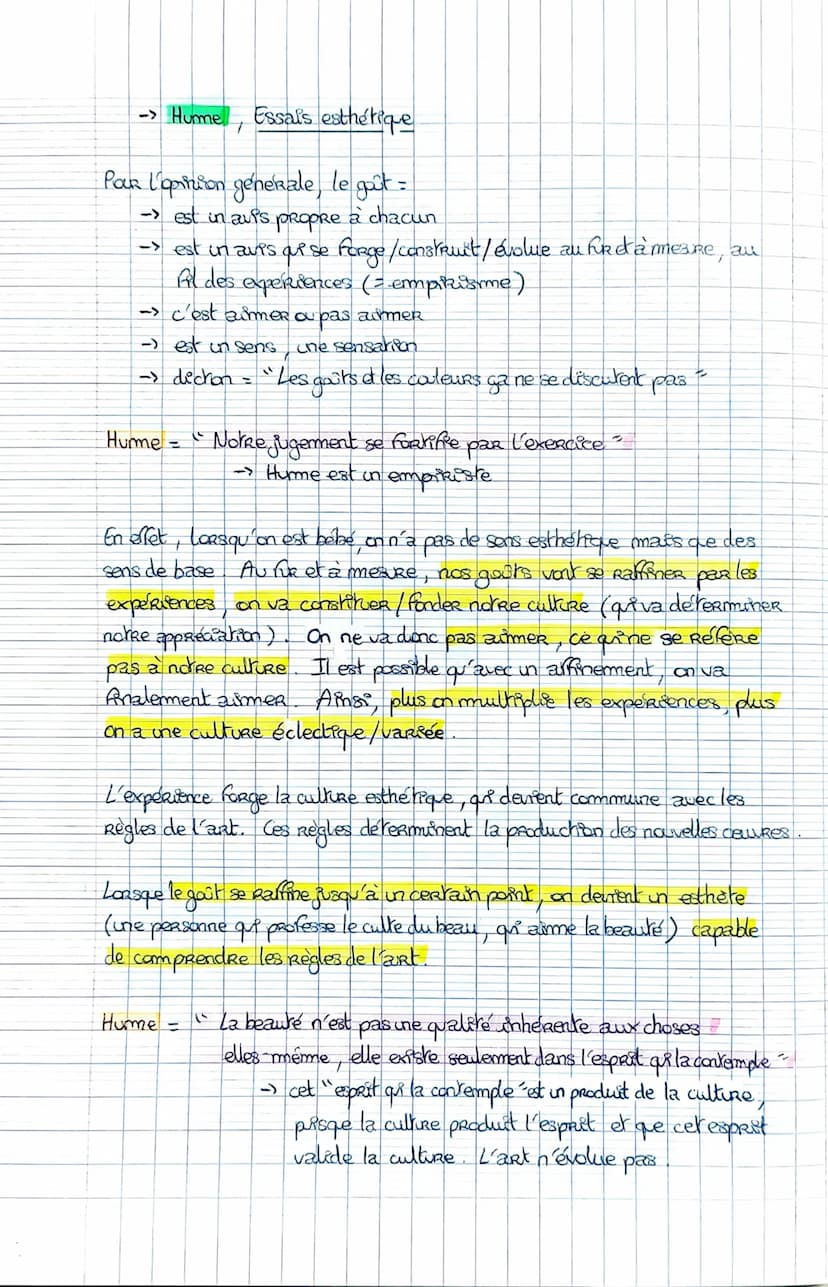 -> Hume, Essais esthétique
Pour l'opinion générale, le goût =
-> est un avis propre à chacun
-> est un avis qui se forge/construit/évolue au fur et à mesure, au
fil des expériences (= empirisme)
-> c'est aimer ou pas aimer
-> est un sens, une sensation
-> dicton = "Les goûts et les couleurs ça ne se discutent pas"
Hume = " Notre jugement se fortifie par l'exercice "
-> Hume est un empiriste
En effet, lorsqu'on est bébé, on n'a pas de sens esthétique mais que des
sens de base. Au fur et à mesure, nos goûts vont se raffiner par les
expériences, on va constituer/fonder notre culture (qui va déterminer
notre appréciation). On ne va donc pas aimer, ce qui ne se réfère
pas à notre culture. Il est possible qu'avec un affinement, on va
finalement aimer. Ainsi, plus on multiplie les expériences, plus
on a une culture éclectique/variée.
L'expérience forge la culture esthétique, qui devient commune avec les
règles de l'art. Ces règles déterminent la production des nouvelles œuvres.
Lorsque le goût se raffine jusqu'à un certain point, on devient un esthète
(une personne qui professe le culte du beau, qui aime la beauté) capable
de comprendre les règles de l'art.
Hume = " La beauté n'est pas une qualité inhérente aux choses
elles-même, elle existe seulement dans l'esprit qui la contemple "
-> cet "esprit qui la contemple" est un produit de la culture,
puisque la culture produit l'esprit et que cet esprit
valide la culture. L'art n'évolue pas.